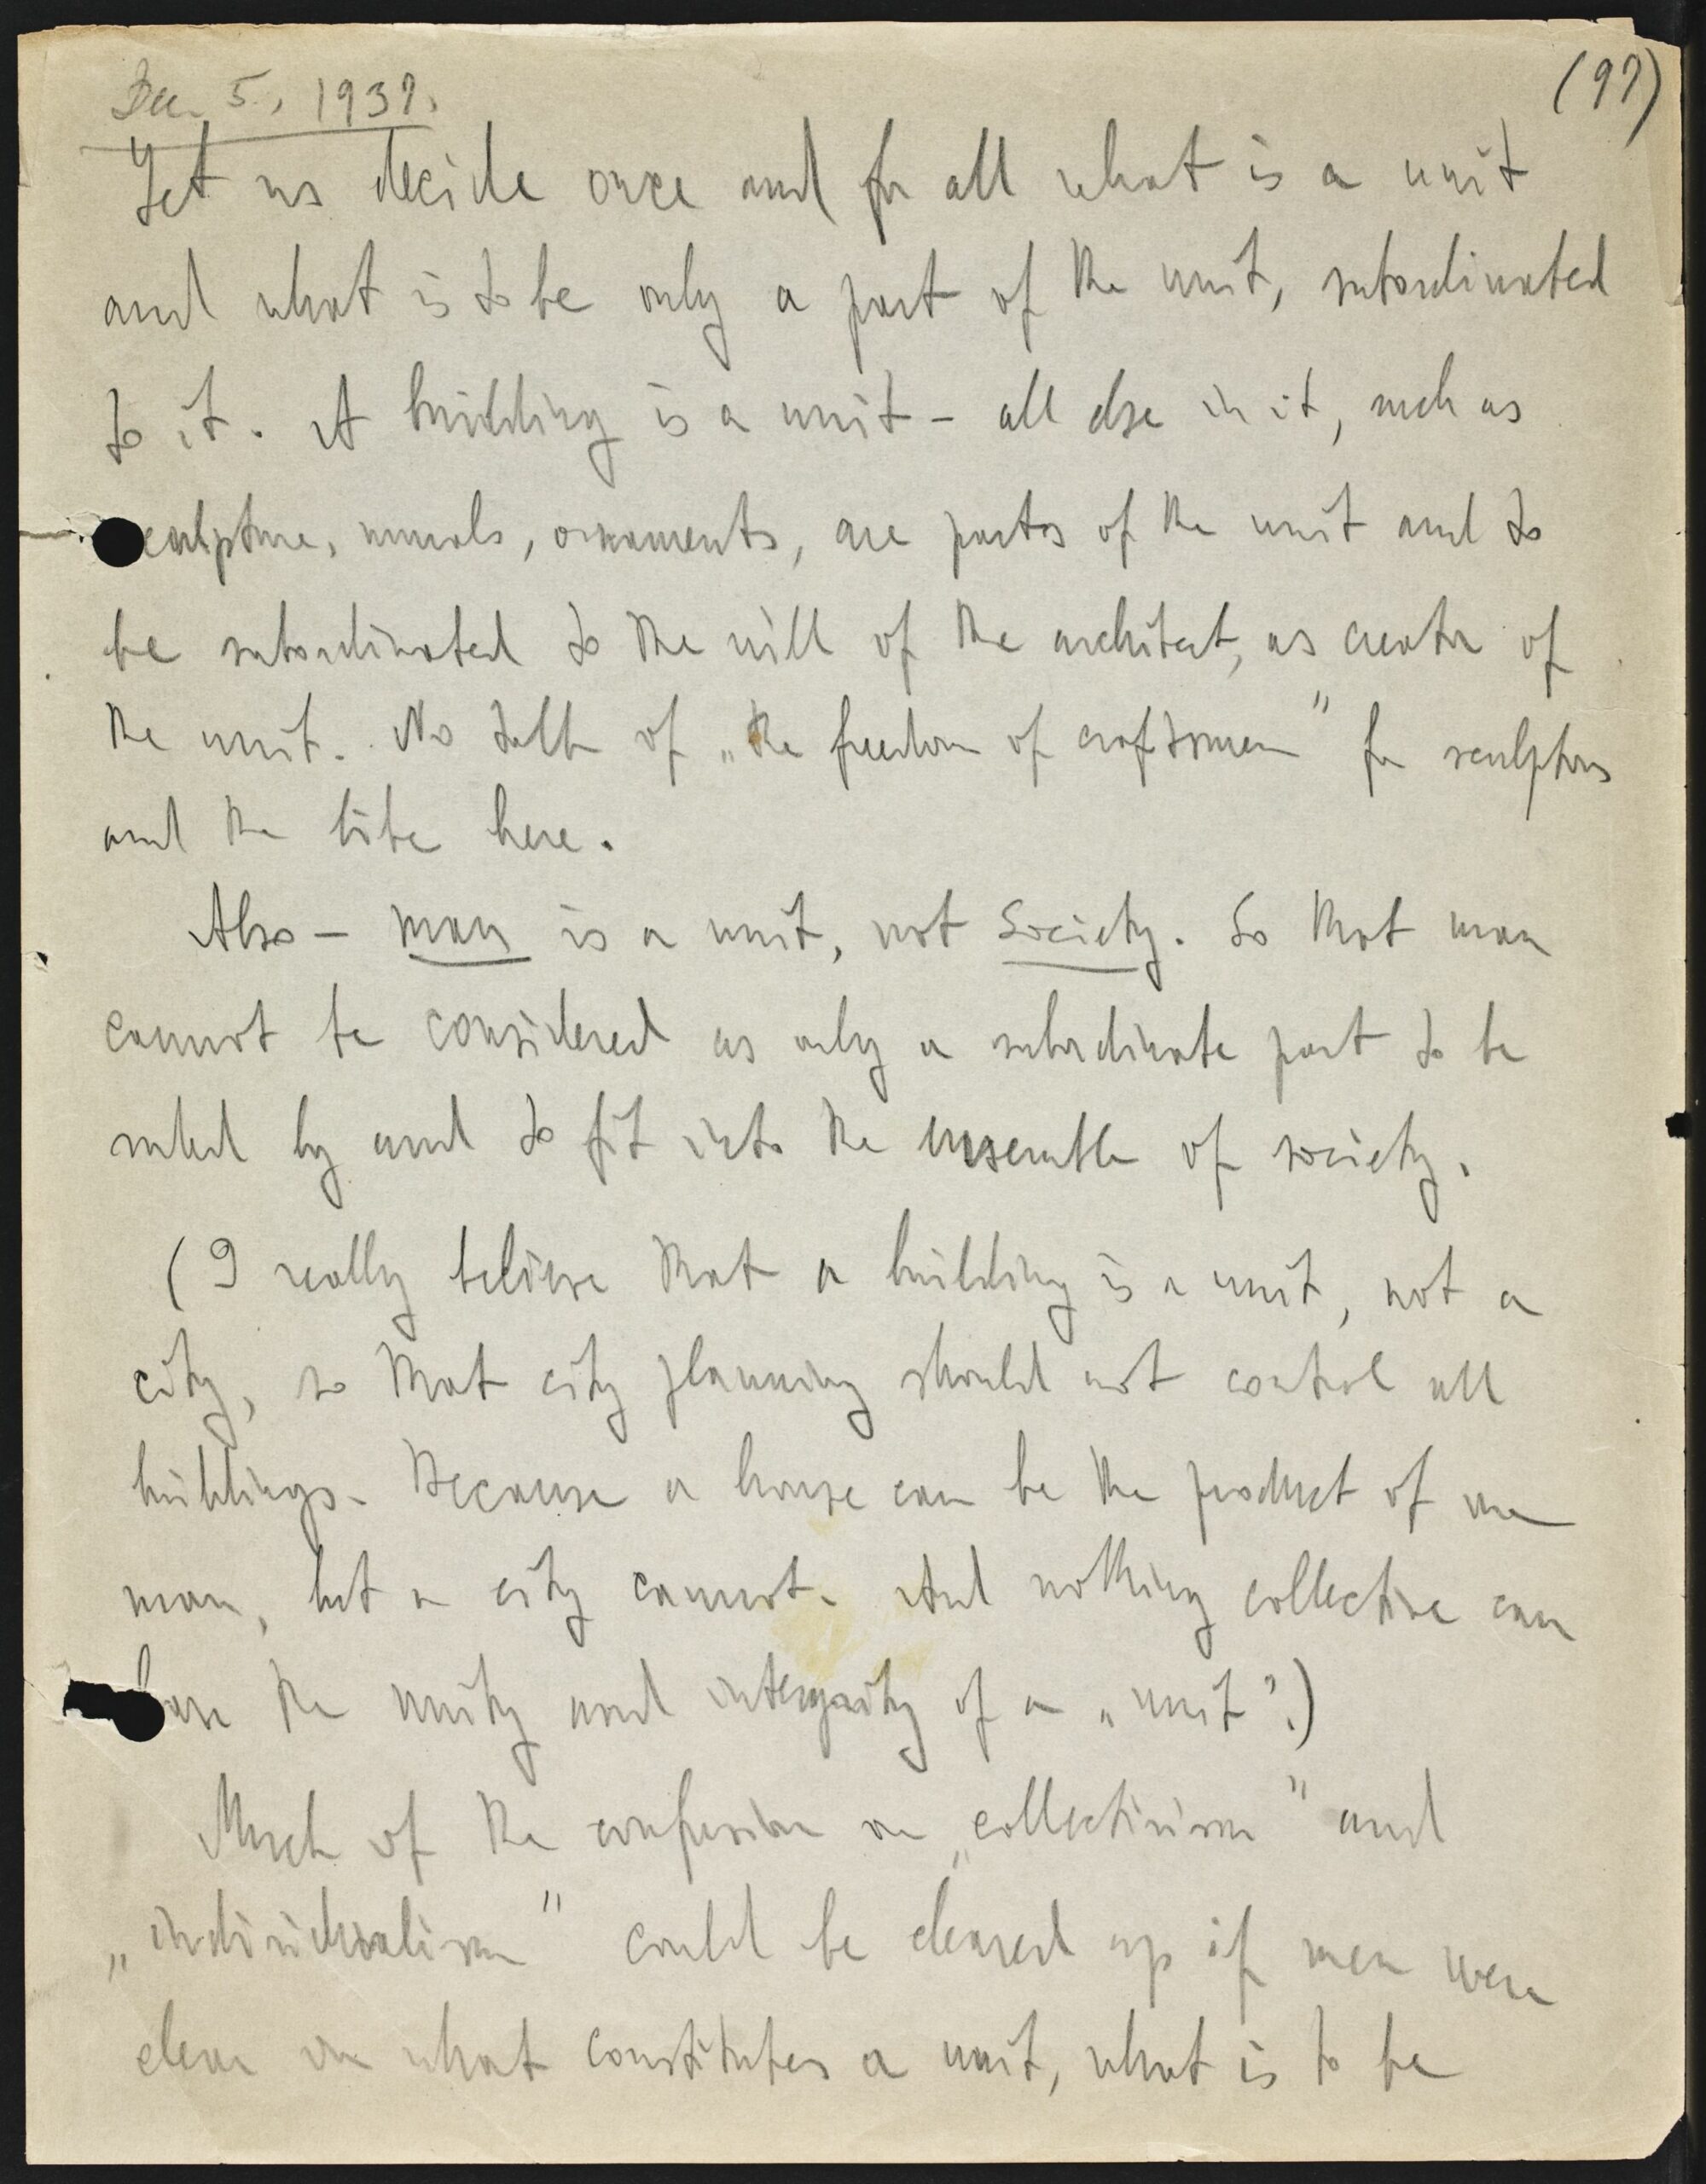 Dec. 5, 1937.
(97)
Let us decide once and for all what is a unit
and what is to be only a part of the unit, subordinated
to it. A building is a unit – all else in it, such as
sculpture, murals, ornaments, are parts of the unit and to
be subordinated to the will of the architect, as creator of
the unit. No talk of „the freedom of craftsmen" for sculptors
and the like here.
Also – man is a unit, not Society. So that man
cannot be considered as only a subordinate part to be
ruled by and to fit into the ensemble of society.
(I really believe that a building is a unit, not a
city, so that city planning should not control all
buildings. Because a house can be the product of one
man, but a city cannot. And nothing collective can
have the unity and integrity of a „unit".)
Much of the confusion on „collectivism" and
„individualism" could be cleared up if men were
clear on what constitutes a unit, what is to be